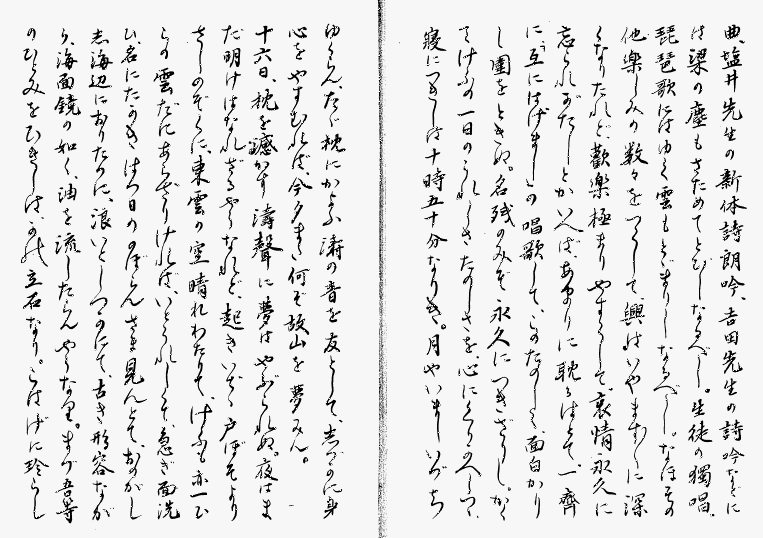 曲、塩井先生の新体詩朗吟、吉田先生の詩吟などに
は梁の塵もさだめてとびしなるべし。生徒の獨唱、
琵琶歌にはゆく雲もとゞまりしなるべし。なほその
他楽しみの数々をつくして、興はいやますしに深
くなりたれど、歡樂極まりやすくして、哀情永久に
忘られがたしとかいへば、あまりに耽るはとて、一齊
に互にはげましの唱歌して、このたのしく、面白かり
し圍をときぬ。名残のみぞ永久につきざりし。かく
てけふの一日のうれしきたのしさを、心にくりかへしつゝ、
寝につきしは十時五十分なりき。月やいましいづち
ゆくらん、たゞ枕にかよふ濤の音を友として、しづかに身
心をやすむれば、今夕また何ぞ故山を夢みん。
十六日、枕を撼かす濤聲に夢はやぶられぬ。夜はま
だ明けはなれざるやうなれど、起きいで戸ぼそより
さしのぞくに、東雲の空晴れわたりて、けふも亦一ひ
らの雲だにあらざりければ、いとうれしくて、急ぎ面洗
ひ、名にたのき はつ日ののぼらんさま見んとて、おのがし
志海辺におりたつに、浪いとしづかにて、古き形容なが
ら、海面鏡の如く、油を流したらんやうなり。まづ吾等
のひとみをひきしは、かの立石なり。こはげに珍らし